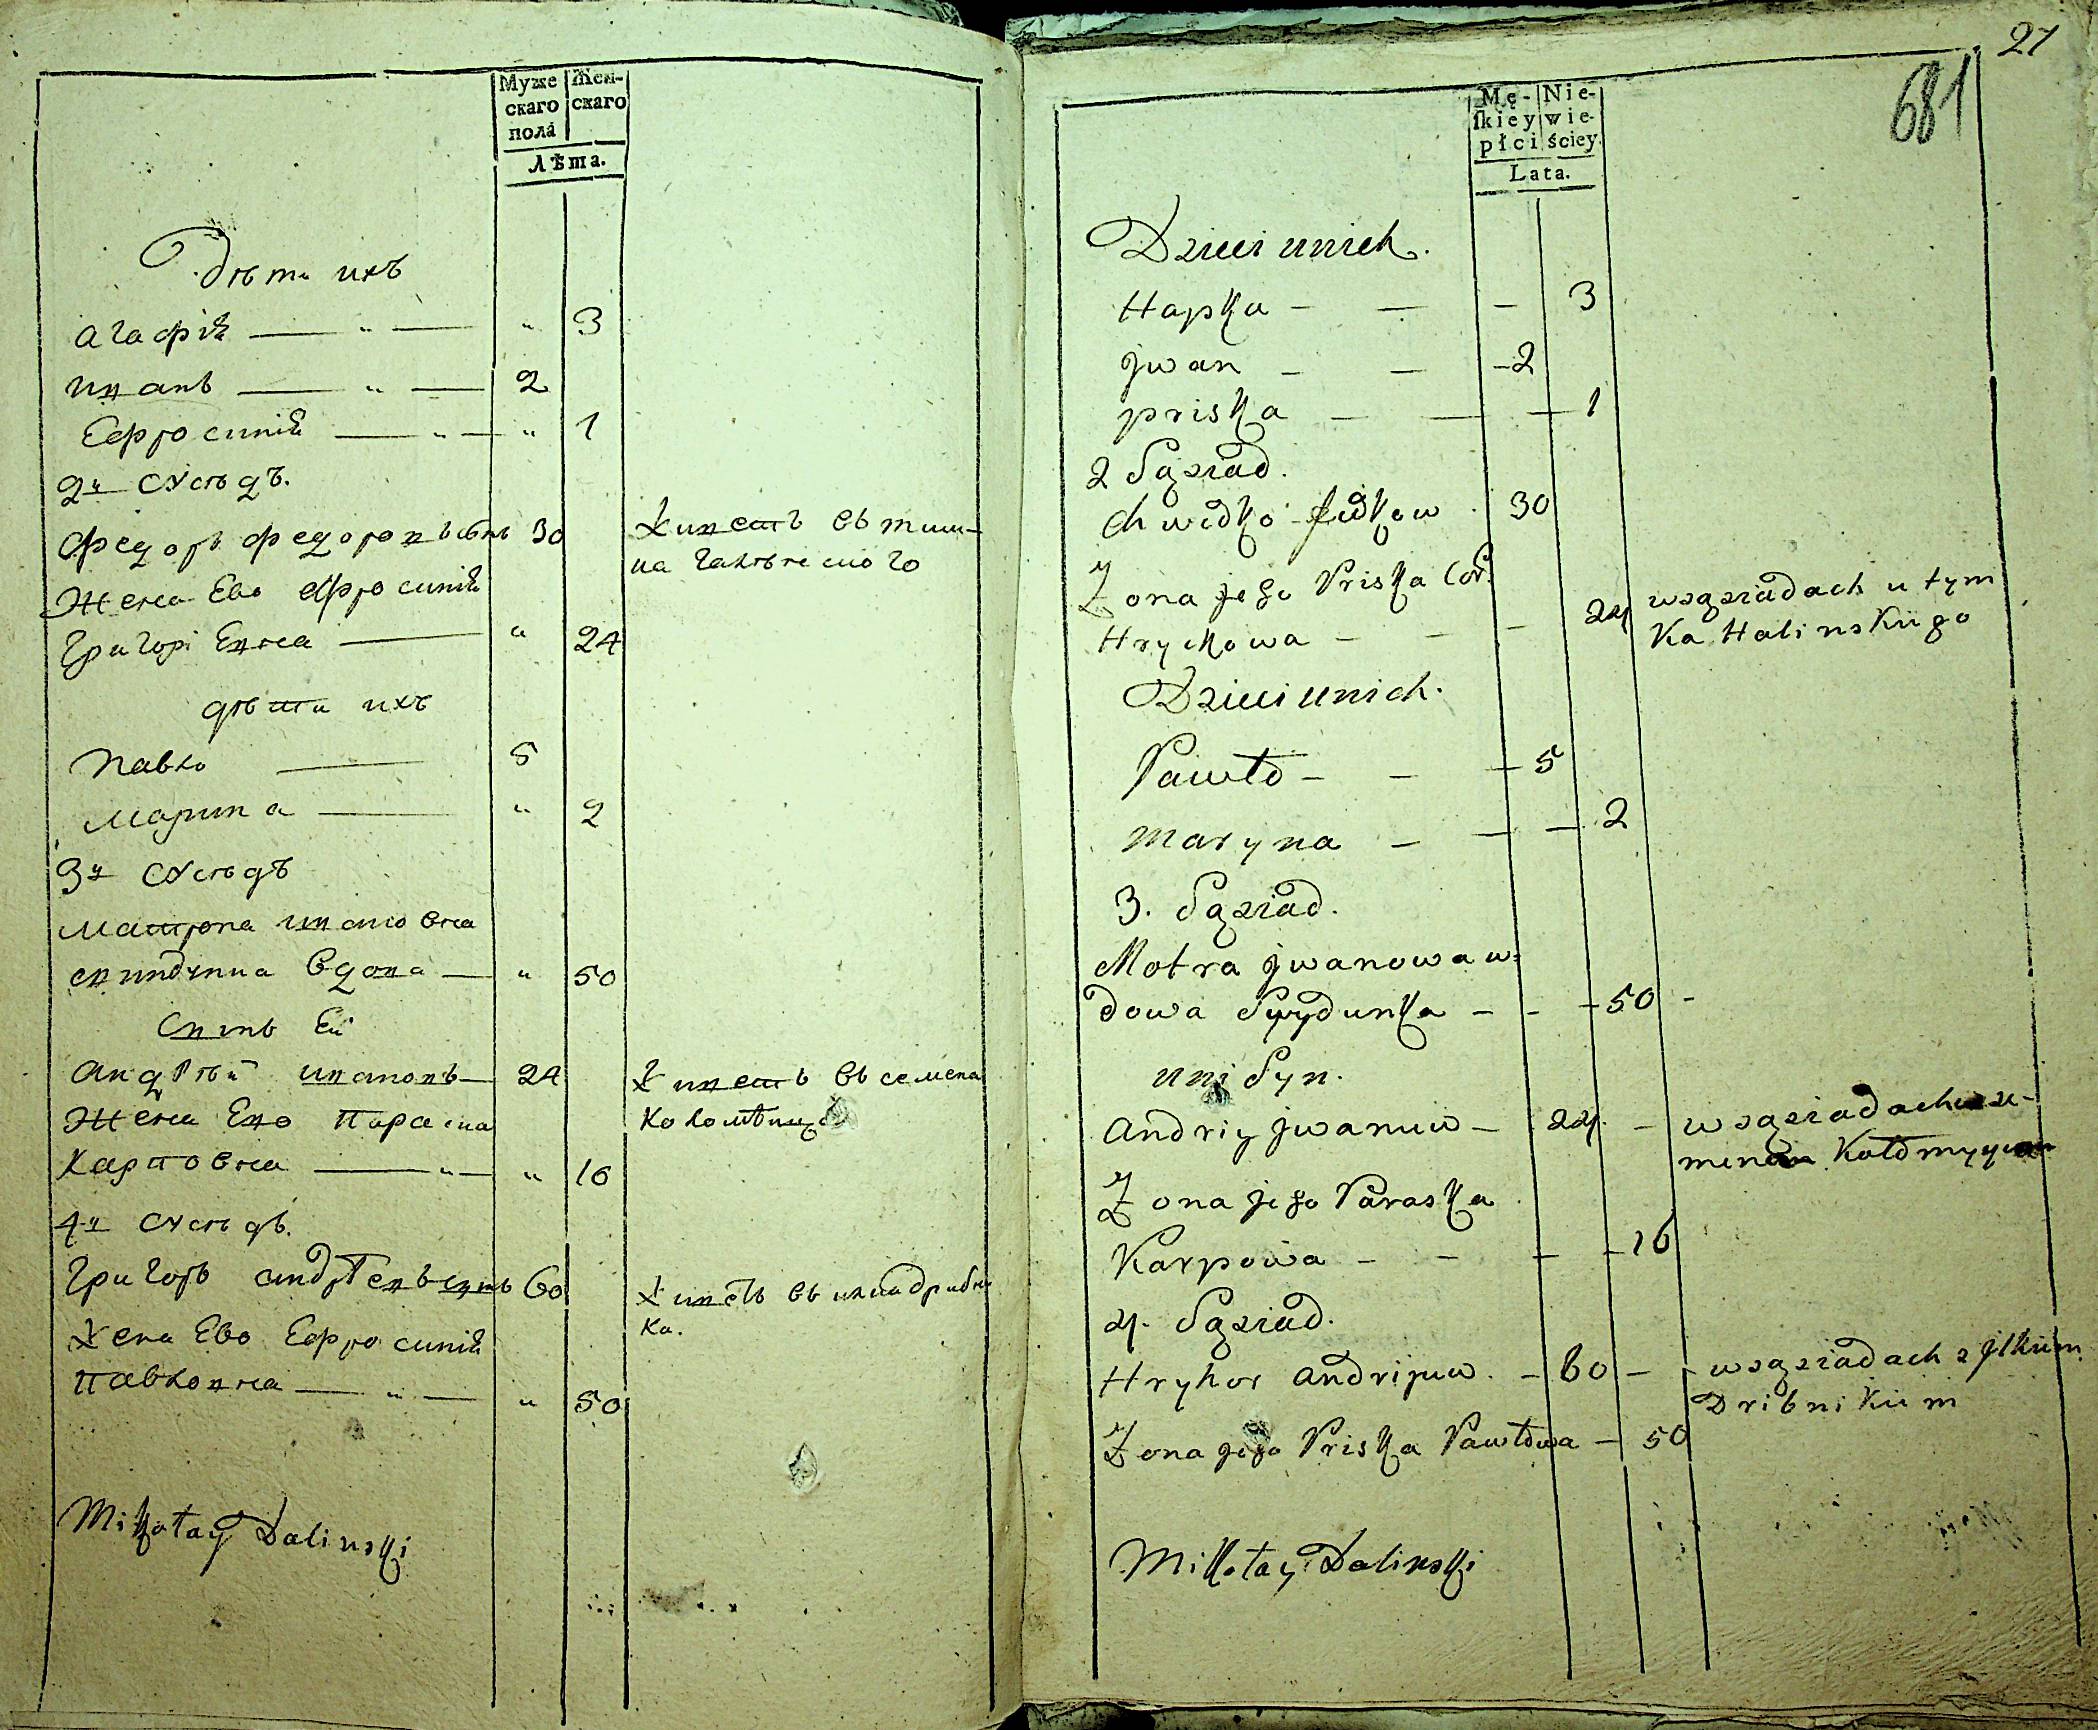 Муже
скаго
пола
Жен-
скаго
Лѣта.
Дѣти ихъ
Агафіѧ — „ — „ 3
Иванъ — „ — 2
Ефросиніѧ — „ — „ 1
2й сусѣдъ.
Федоръ Федоровъ сынъ 30
Живетъ въ тими-
на
Жена Ево Ефросиніѧ
Григоріевна — „ 24
дѣти ихъ
Павло — 5
Марина — „ 2
3й сусѣдъ
Матрона Ивановна
вдова — „ 50
Сынъ Еи
Андрѣй Ивановъ — 24
Живетъ въ семена
Жена Ево Параска
Коломѣица
Карповна — „ — „ 16
4й сусѣдъ.
Григоръ Андрѣевъ сынъ 60
Живетъ въ
ка.
Жена Ево Ефросиніѧ
Павловна — „ — „ 50
Mikołay Dalinski
27
681
Mę-
skiey
płci
Nie-
wie-
ściey
Lata.
Dzieci u nich.
Hapka — — — 3
Jwan — — - 2
priska — — — 1
2 Sąsiad.
Chwedko Fedkow 30
Zona jego Priska Cor.
Hryckowa — — — 24
w sąsiadach u tym
ka Halinskiego
Dzieci u nich.
Pawło — — — 5
Maryna — — — 2
3. Sąsiad.
Motra Jwanowa w-
dowa Swydunka — — — 50 -
u ni Syn.
Andriy Jwanuw — 24. —
w sąsiadach u se-
mena Kołomyyca
Zona jego Paraska
Karpowa — — — — 16
4. Sąsiad.
Hryhor Andrijuw. — 60 —
w sąsiadach z Jlkiim
Dribnikiim
Zona jego Priska Pawłowa — 50
Mikołay Dalinski